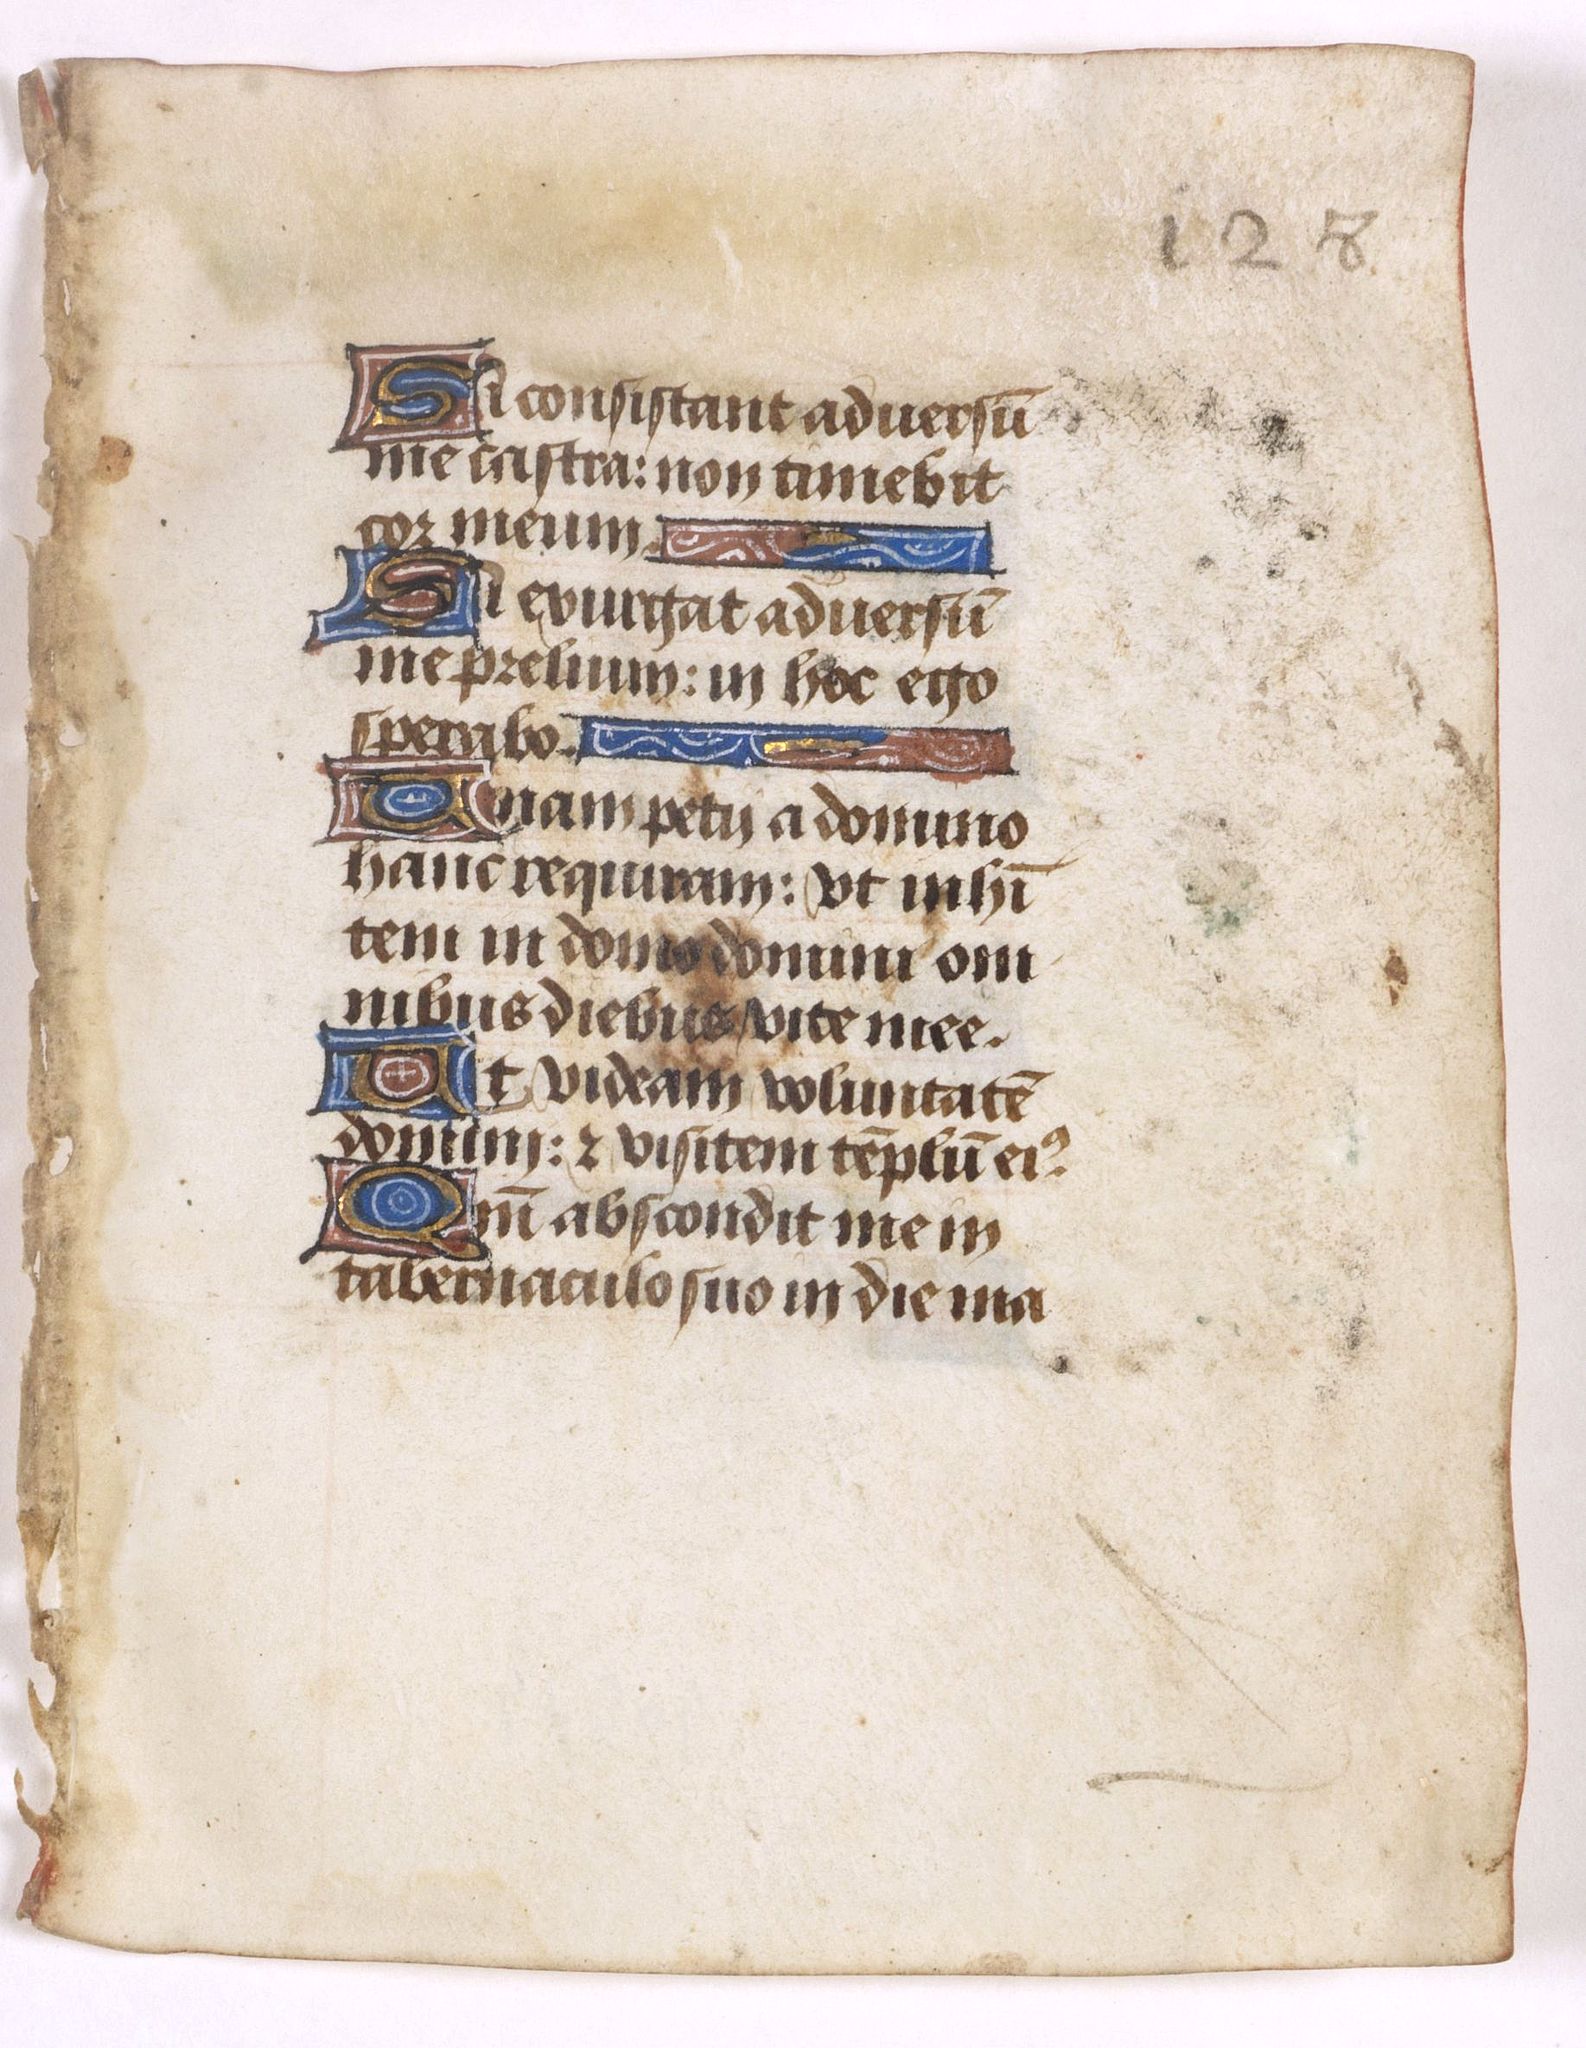 128
Si consistant aduersū
me castra: non timebit
cor meum.
Si exurgat aduersū
me prelium: in hoc ego
sperabo.
Unam petii a domino
hanc requiram: vt inhi
tem in domo domini om
nibus diebus vite mee.
Ut videam voluntatē
domini: ⁊ visitem tēplū eiꝰ.
Qm̄ abscondit me in
tabernaculo suo in die ma